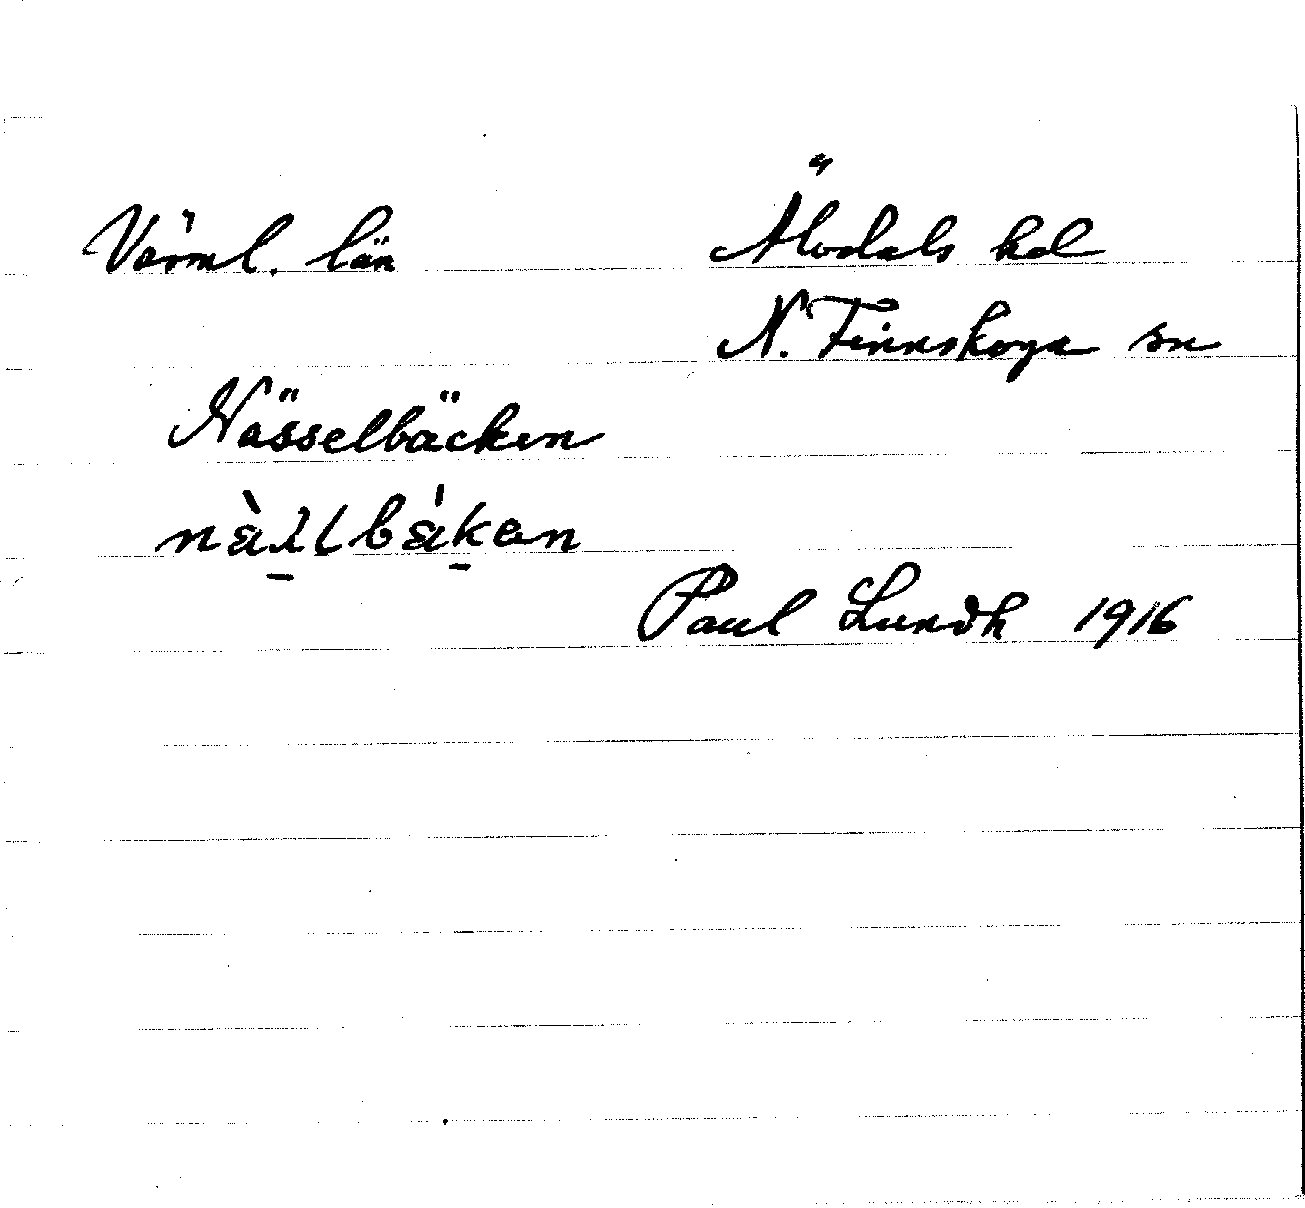 Värml. län Älvdals hd
N. Finnskoga sn
Nässelbäcken
Paul Lundh 1916